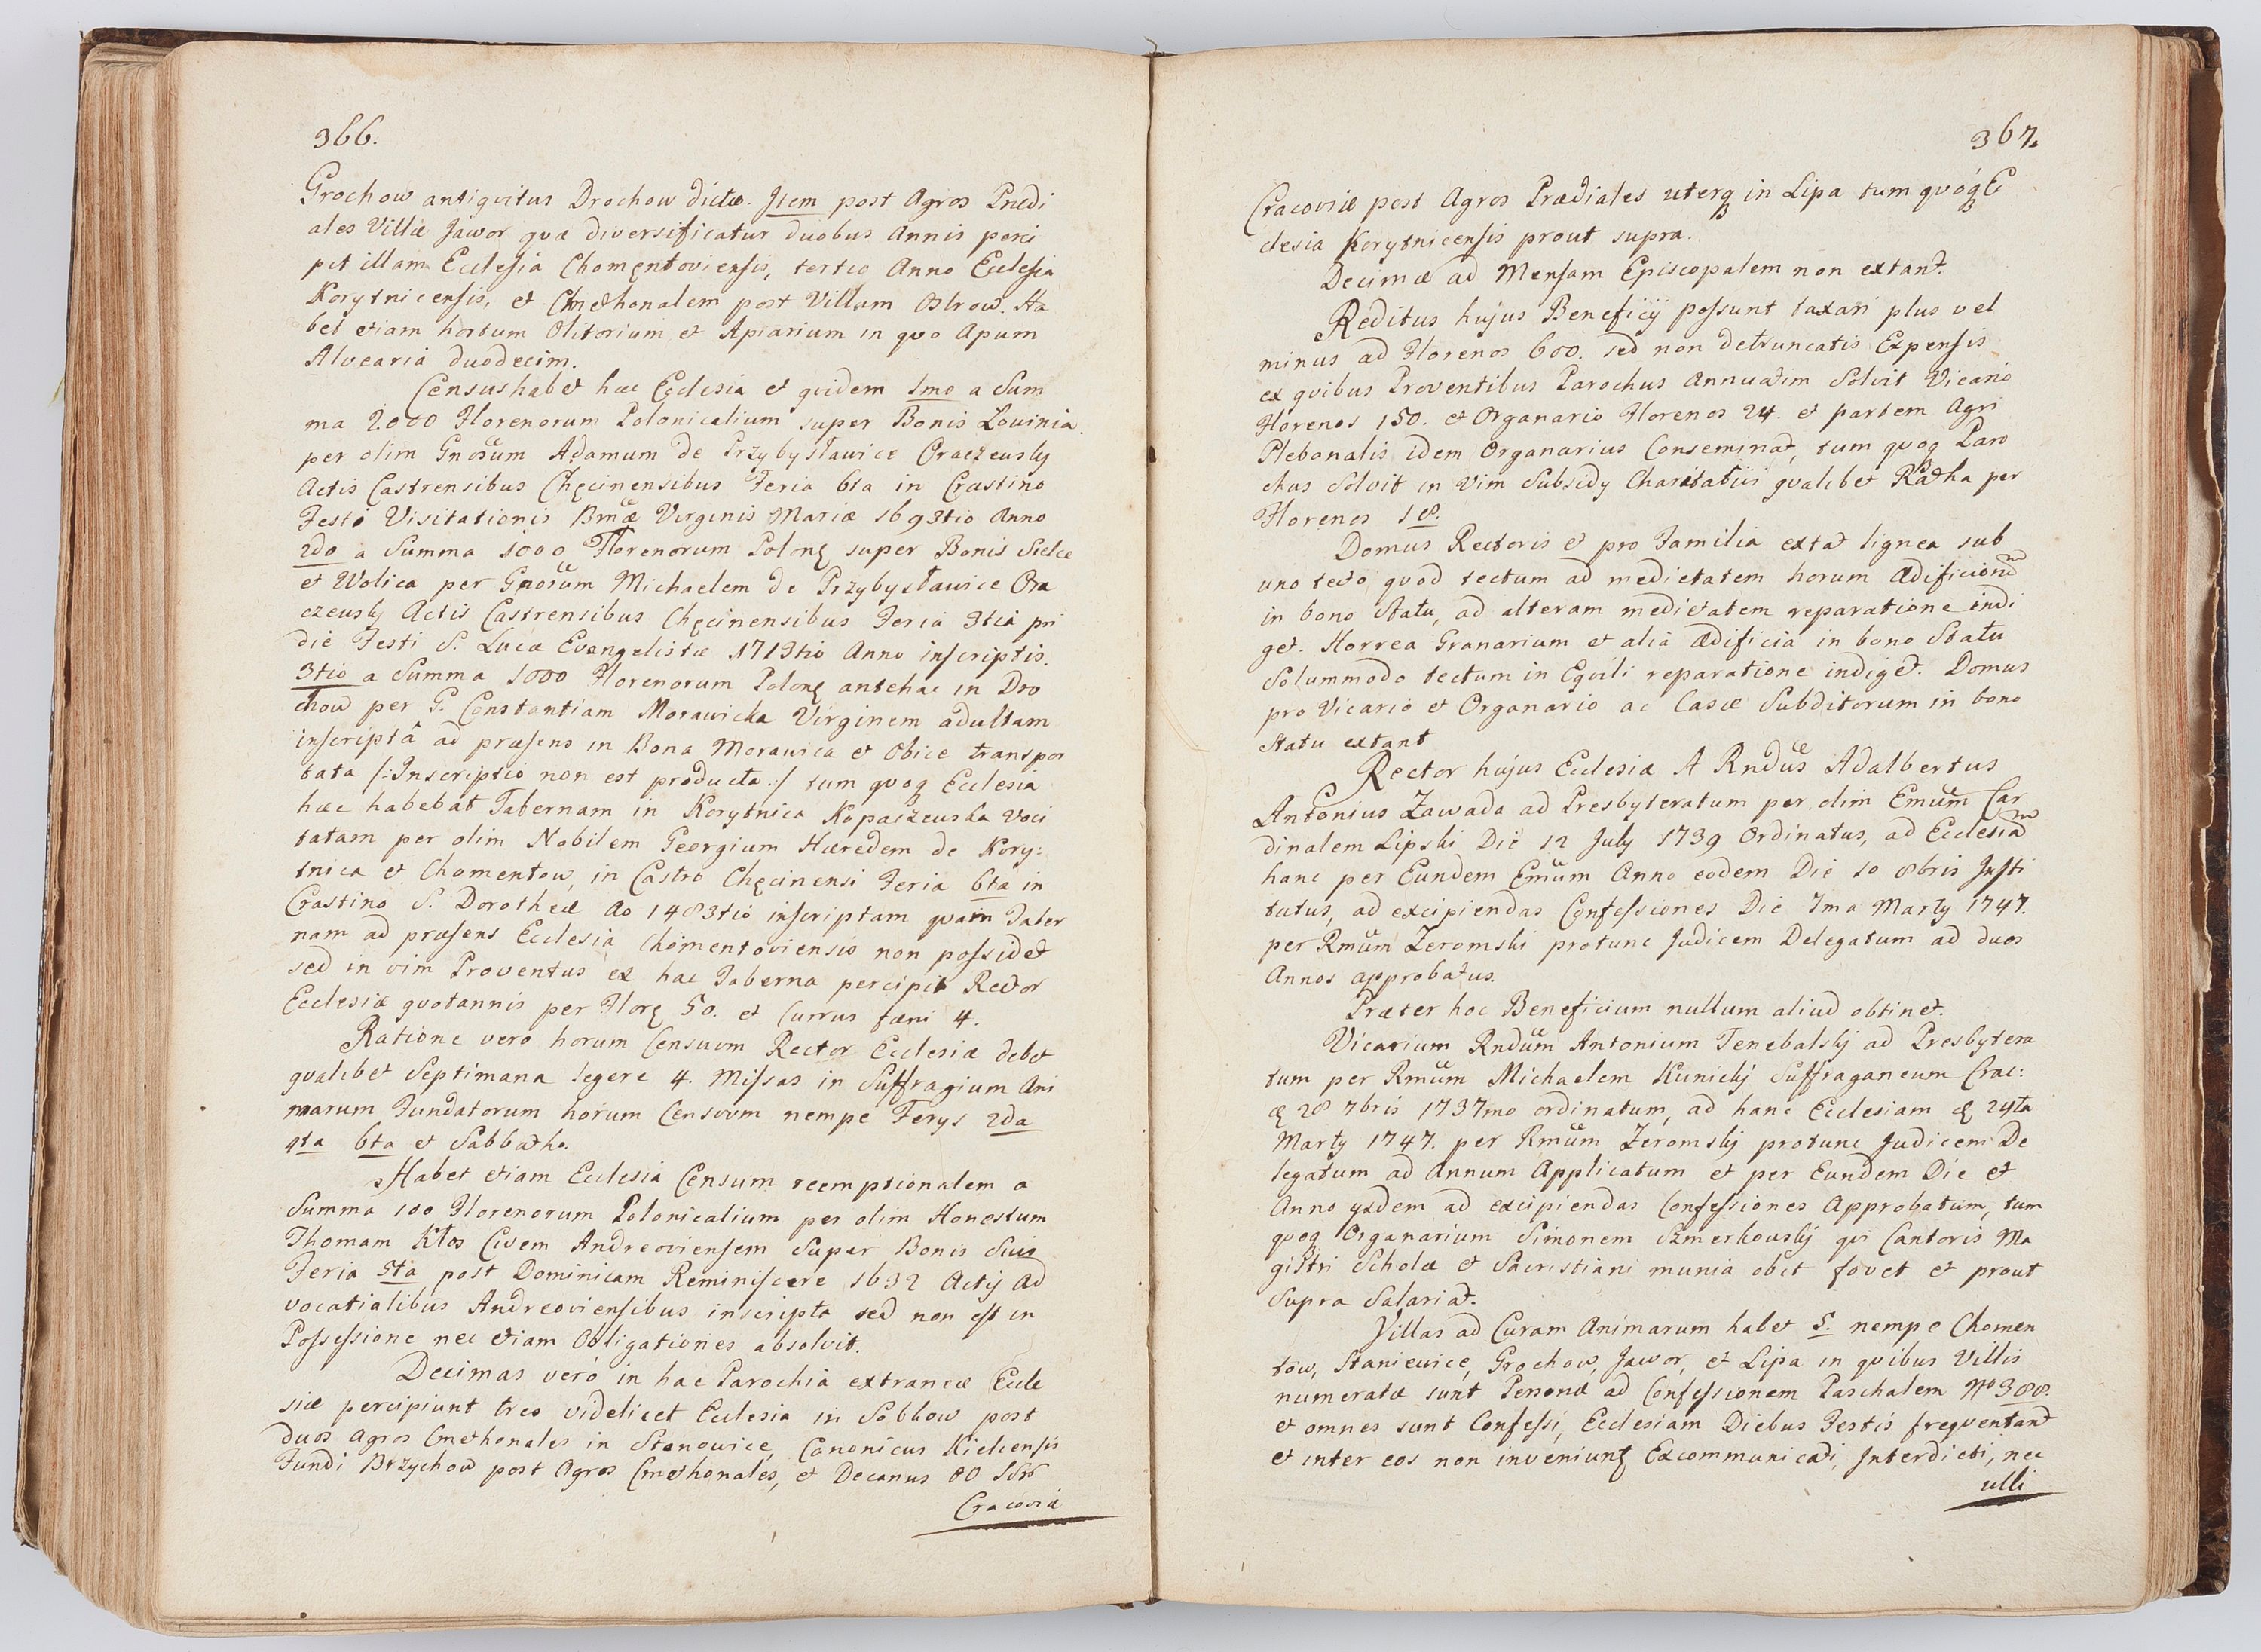 366.
Grochow antiqvitus Drochow dictæ. Item post Agros Prædi
ales Villæ Jawor qvæ diversificatur duobus Annis perci
pit illam Ecclesia Chomętoviensis, tertio Anno Ecclesia
Korytnicensis, et Cmethonalem post Villam Ostrow. Ha
bet etiam hortum Olitorium et Apiarium in qvo Apum
Alvearia duodecim.
Census habet hæc Ecclesia et qvidem 1mo a Sum
ma 2000 Florenorum Polonicalium super Bonis Lovinia
per olim Gnosum Adamum de Przybysławice Oraczewsky
Actis Castrensibus Chęcinensibus Feria 6ta in Crastino
Festi Visitationis Bmæ Virginis Mariæ 1693tio Anno
2do a Summa 1000 Florenorum Polonę super Bonis Sielce
et Wolica per Gnosum Michaelem de Przybysławice Ora
czewsky Actis Castrensibus Chęcinensibus Feria 3tia pri
die Festi S. Lucæ Evangelistæ 1713tio Anno inscriptis.
3tio a Summa 1000 Florenorum Polonę antehac in Dro
chow per G. Constantiam Morawicka Virginem adultam
inscriptâ ad præsens in Bona Morawica et Obice transpor
tata /:Inscriptio non est producta:/ tum qvoq Ecclesia
hæc habebat Tabernam in Korytnica Kopaczewska Voci
tatam per olim Nobilem Georgium Hæredem de Kory:
tnica et Chomentow, in Castro Chęcinensi Feria 6ta in
Crastino S. Dorotheæ Ao 1483tio inscriptam qvam Taber
nam ad præsens Ecclesia Chomentoviensis non possidet
sed in vim Proventus ex hac Taberna percipit Rector
Ecclesiæ qvotannis per Florę 50. et Currus fæni 4.
Ratione vero horum Censuum Rector Ecclesiæ debet
qvalibet Septimana legere 4. Missas in Suffragium Ani
marum Fundatorum horum Censuum nempe Ferys 2da
4ta 6ta et Sabbatho.
Habet etiam Ecclesia Censum reemptionalem a
Summa 100 Florenorum Polonicalium per olim Honestum
Thomam Kłos Civem Andreoviensem Super Bonis Suis
Feria 5ta post Dominicam Reminiscere 1632 Actis Ad
vocatialibus Andreoviensibus inscripta sed non est in
Possessione nec etiam Obligationes absolvit.
Decimas verò in hac Parochia extraneæ Eccle
siæ percipiunt tres videlicet Ecclesia in Sobkow post
duos Agros Cmethonales in Stanowice, Canonicus Kielcensis
Fundi Brzychow post Agros Cmethonales, et Decanus OO SSrū
Cracoviæ
367.
Cracoviæ post Agros Prædiales uterq in Lipa tum qvoq Ec
clesia Korytnicensis prout supra.
Decimæ ad Mensam Episcopalem non extant.
Reditus hujus Beneficij possunt taxari plus vel
minus ad Florenos 600. sed non detruncatis Expensis
ex qvibus Proventibus Parochus Annuatim Solvit Vicario
Florenos 150. et Organario Florenos 24. et partem Agri
Plebanalis idem Organarius Conseminat, tum qvoq Paro
chus Solvit in Vim Subsidy Charitativi qvalibet Ratha per
Florenos 18.
Domus Rectoris et pro Familia extat lignea sub
uno tecto, qvod tectum ad medietatem horum Ædificiorum
in bono Statu, ad alteram medietatem reparatione indi
get. Horrea Granarium et alia Ædificia in bono Statu
Solummodo tectum in Eqvili reparatione indiget. Domus
pro Vicario et Organario ac Casæ Subditorum in bono
Statu extant
Rector hujus Ecclesiæ A Rndus Adalbertus
Antonius Zawada ad Presbyteratum per olim Emum Car
dinalem Lipski Die 12 July 1739 Ordinatus, ad Ecclesiam
hanc per Eundem Emum Anno eodem Die 10 8bris Insti
tutus, ad excipiendas Confessiones Die 7ma Marty 1747.
per Rmum Zeromski protunc Judicem Delegatum ad duos
Annos approbatus.
Præter hoc Beneficium nullum aliud obtinet.
Vicarium Rndum Antonium Tenebalsky ad Presbytera
tum per Rmum Michaelem Kunicky Suffraganeum Crac:
ę 28 7bris 1737mo ordinatum, ad hanc Ecclesiam ę 24ta
Marty 1747. per Rmum Zeromsky protunc Judicem De
legatum ad Annum Applicatum et per Eundem Die et
Anno ysdem ad excipiendas Confessiones Approbatum, tum
qvoq Organarium Simonem Szmerkowsky qvi Cantoris Ma
gistri Scholæ et Sacristiani munia obit fovet et prout
Supra Salariat.
Villas ad Curam Animarum habet 5. nempe Chomen
tow, Staniewice, Grochow, Jawor, et Lipa in qvibus Villis
numeratæ sunt Personæ ad Confessionem Paschalem No 388.
et omnes sunt Confessi, Ecclesiam Diebus Festis freqventant
et inter eos non inveniuntę Excommunicati, Interdicti, nec
ulli